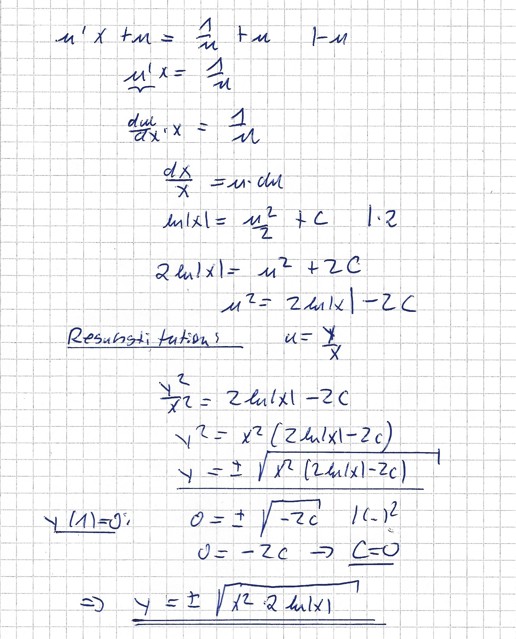 u'x + u = 1/u + u   |-u
u'x = 1/u
du/dx · x = 1/u
dx/x = u·du
ln|x| = u²/2 + C   |·2
2 ln|x| = u² + 2C
u² = 2 ln|x| - 2C
Resubstitution: u = y/x
y²/x² = 2 ln|x| - 2C
y² = x² (2 ln|x| - 2c)
y = ± √(x² (2 ln|x| - 2c))
y(1)=0: 0 = ± √(-2c)   |(-)²
0 = -2c → C=0
⇒ y = ± √(x² · 2 ln|x|)